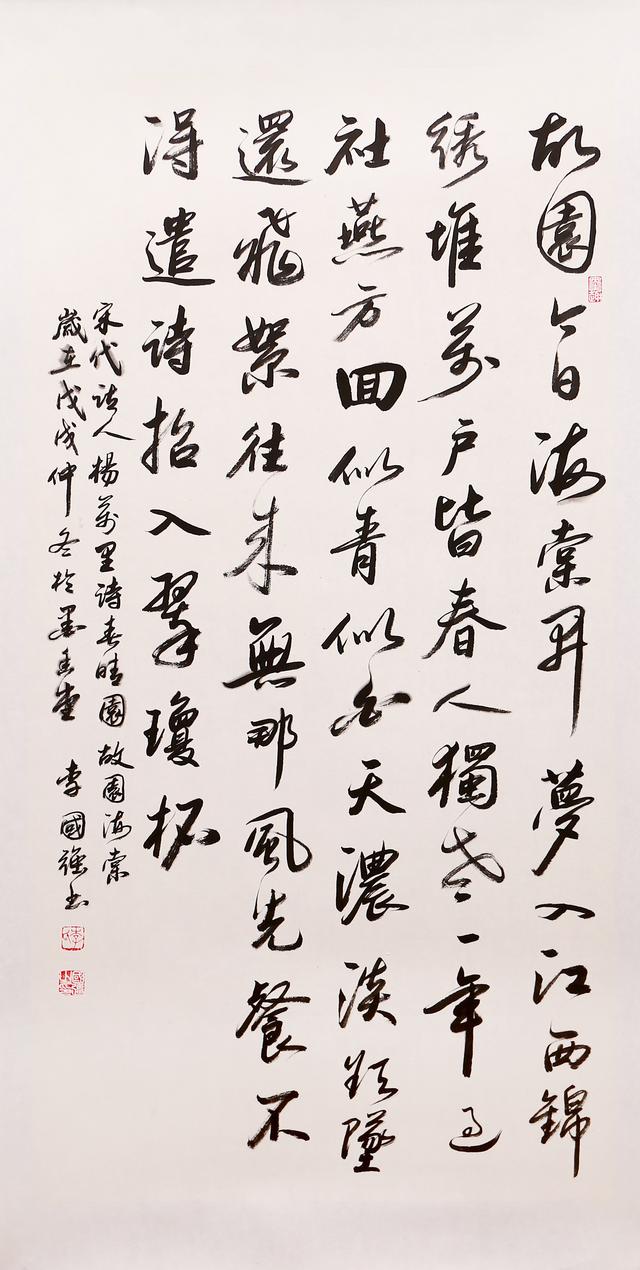 故園今日海棠開夢入江西錦
綉堆萬户皆春人獨老一年過
社燕方囬似青似白天濃淡欲墜
還飛絮往来無那風光餐不
得遣詩招入翠瓊杯
宋代詩人楊萬里詩春晴園故園海棠
歲在戊戌仲冬於墨香堂 李國強書